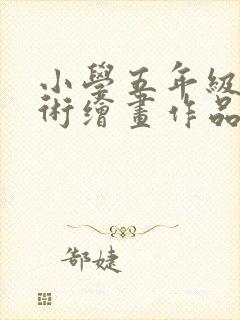 小學五年級
術繪畫作品
郜婕